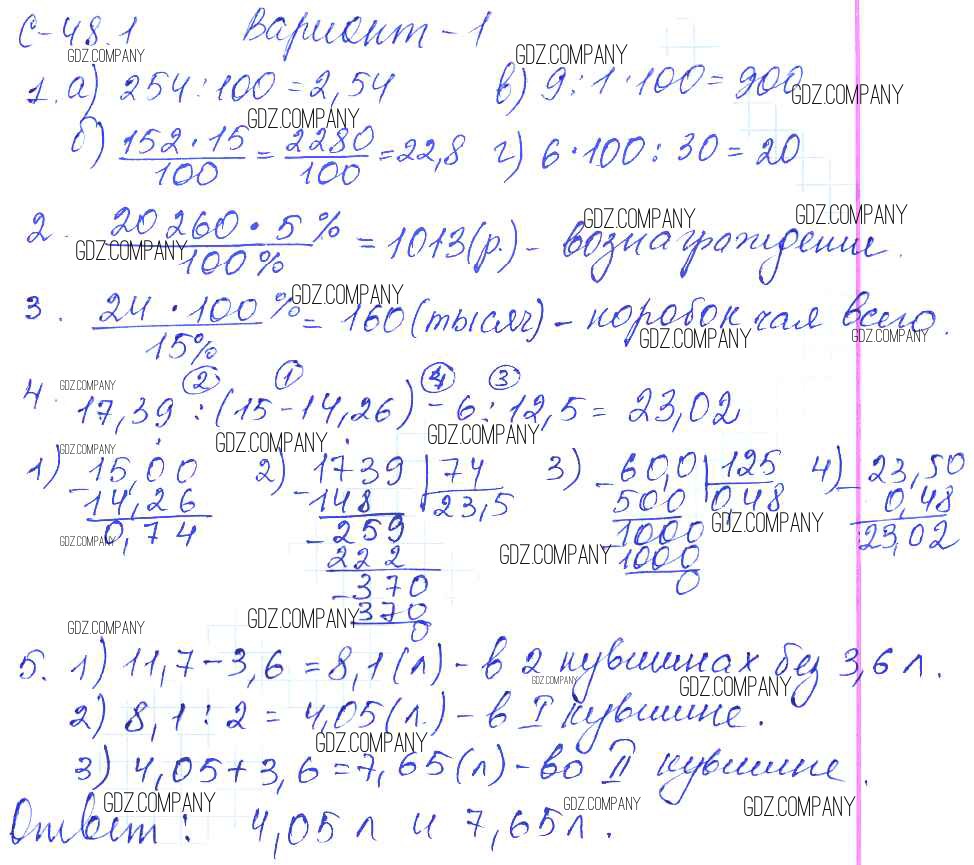 С-48.1 Вариант-1
1. а) 254 : 100 = 2,54 в) 9 : 1 · 100 = 900
б) 152 · 15 / 100 = 2280 / 100 = 22,8 г) 6 · 100 : 30 = 20
2. 20 260 · 5 % / 100% = 1013 (р.) - вознаграждение.
3. 24 · 100 % / 15% = 160 (тысяч) - коробок чая всего.
② ① ④ ③
4. 17,39 : (15 - 14,26) - 6 : 12,5 = 23,02
1) 15,00 2) 1739 | 74 3) 60,0 | 125 4) 23,50
- 14,26 - 148 23,5 - 500 0,48 - 0,48
0,74 - 259 - 1000 23,02
222 1000
- 370 0
370
0
5. 1) 11,7 - 3,6 = 8,1 (л) - в 2 кувшинах без 3,6 л.
2) 8,1 : 2 = 4,05 (л.) - в I кувшине.
3) 4,05 + 3,6 = 7,65 (л) - во II кувшине.
Ответ: 4,05 л и 7,65 л.
GDZ.COMPANY